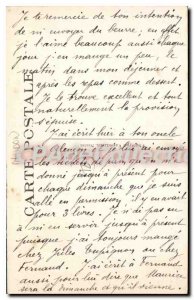 Je te remercie de ton intention
de m'envoyer du beurre, en effet
je l'aime beaucoup aussi chaque
jour j'en mange un peu, le
matin dans mon déjeuner et
après les repas comme dessert
Je le trouve excellent et tout
naturellement la provision
s'épuise.
J'ai écrit hier à ton oncle
je lui ai envoyé
les
donné jusqu'à présent pour
chaque dimanche que je suis
allé en permission, il y en avait
pour 3 livres. Je n'ai pas eu
à m'en servir jusqu'à présent
puisque j'ai toujours mangé
chez Jules ou chez
Fernand. J'ai écrit à Fernand
aussi pour lui dire que Maurice
sera là dimanche et qu'il vienne.
CARTE POSTALE